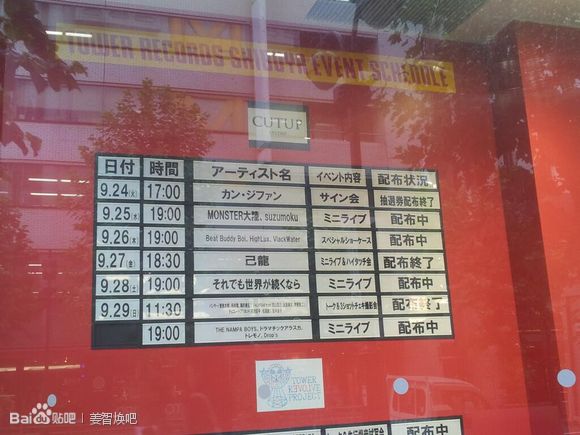 TOWER RECORDS SHIBUYA EVENT SCHEDULE
CUTUP
日付 時間 アーティスト名 イベント内容 配布状況
9.24(火) 17:00 カン・ジファン サイン会 抽選券配布終了
9.25(水) 19:00 MONSTER大陸、suzumoku ミニライブ 配布中
9.26(木) 19:00 Beat Buddy Boi, HighLux, VlackWater スペシャルショーケース 配布中
9.27(金) 18:30 己龍 ミニライブ&ハイタッチ会 配布終了
9.28(土) 19:00 それでも世界が続くなら ミニライブ 配布中
9.29(日) 11:30 トーク&3ショットチェキ撮影会 配布終了
19:00 THE NAMPA BOYS、ドラマチックアラスカ、 ミニライブ 配布中
トレモノ、Drop's
TOWER
REVOLVE
PROJECT
Baidu贴吧 | 姜智焕吧